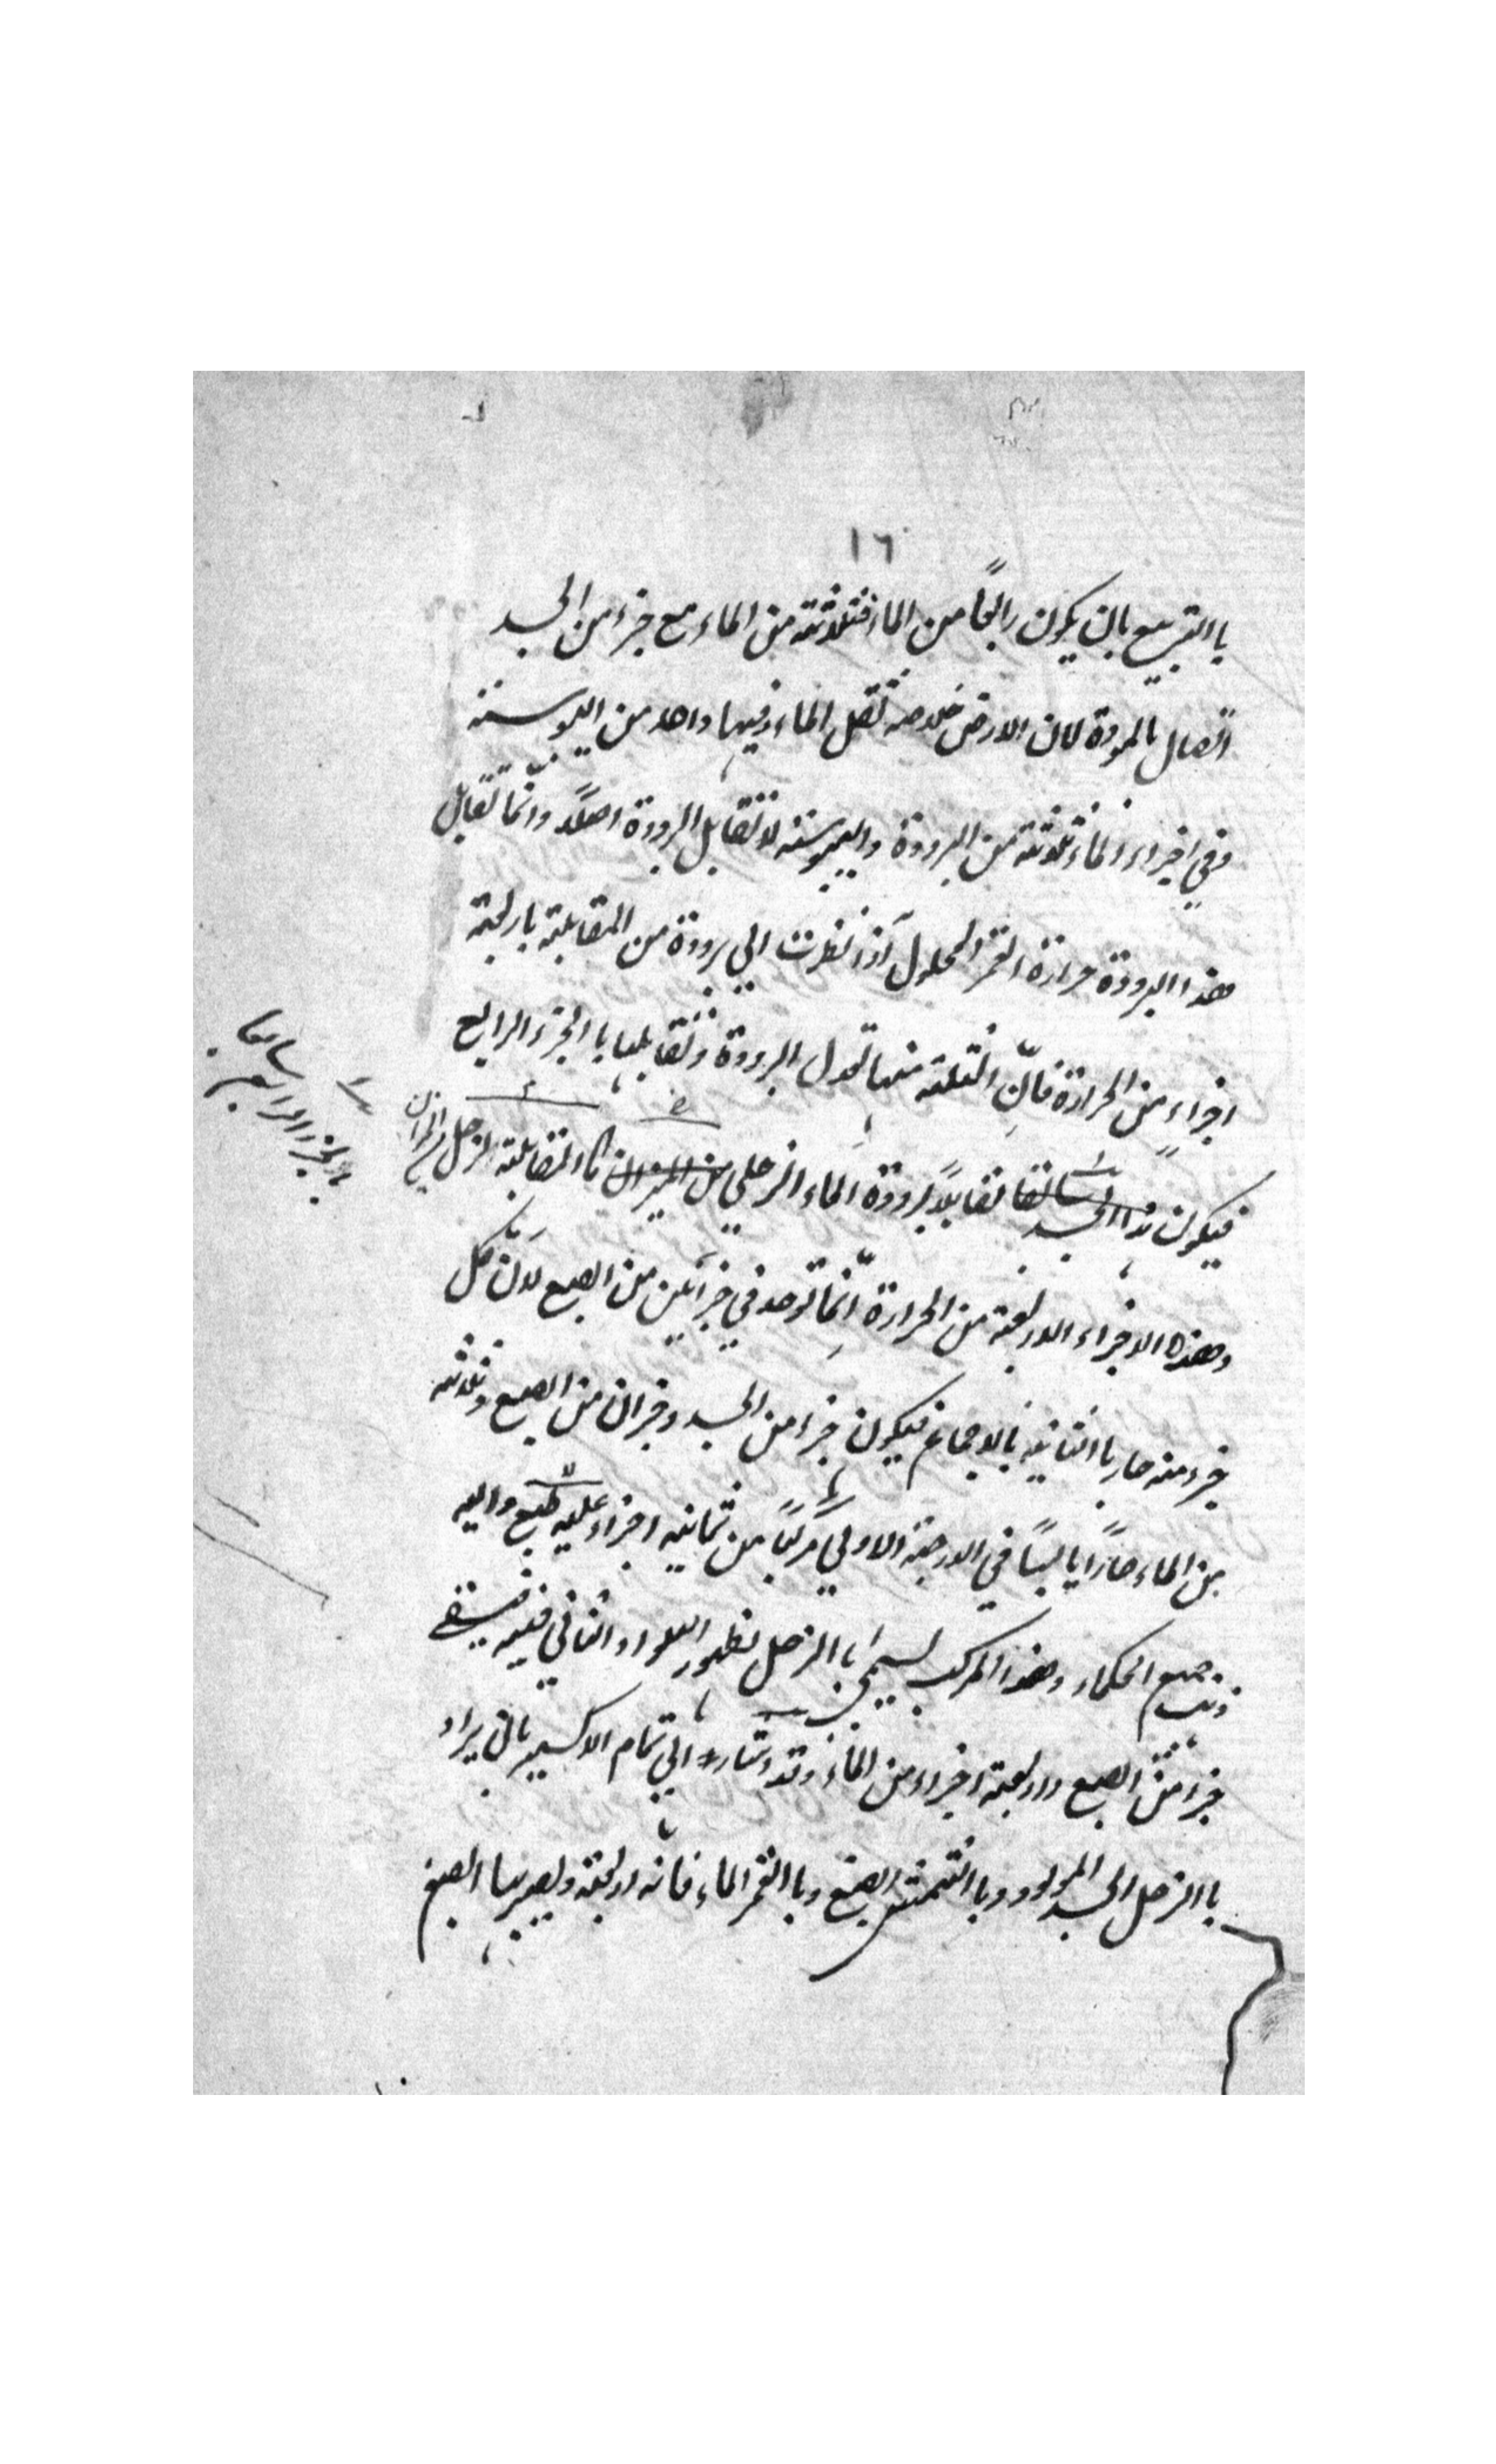 ١٦
با التربيع بان يكون رابعًا من الماء فثلاثة من الماء مع جزء من الجسد
اتصال بالمودة لان الارض خلاصة ثفل الماء وفيها واحد من اليبوسته
وفي اجزاء الماء ثلاثة من البرودة واليبوسته لا تقابل البرودة اصلًا وانّما تقابل
هذا البرودة حرارة القمر المحلول اذا نظرت الي برودة من المقابلة باربعة
اجزاء من الحرارة فانّ الثلثة منها تعدل البرودة وتقابلها با الجزء الرابع
فيكون تقابلًا برودة الماء الزحلي من الميزان كا المقابلة الزحل
با الجزء الرابع سابعا
وهذه الاجزاء الاربعة من الحرارة انّما توجد في جزأين من الصبع لانّ كل
جزء منه حار با الثانيه بالاجماع فيكون جزء من الجسد وجزان من الصبع وثلاثه
من الماء حارًا يابسًا في الدرجة الاولي مركبًا من ثمانيه اجزاء عليه طبع واليه
صبع الحكماء وهذا المركب يسمي با الزحل لظهور السواد الثاني فيه فيسقي
جزء من الصبع واربعة اجزاء من الماء وقد اشار الي تمام الاكسير بان يراد
با الزحل الجسد المولود وبا الشمس الصبغ وبا القمر الماء فانه اربعة ويصير بها الصبغ